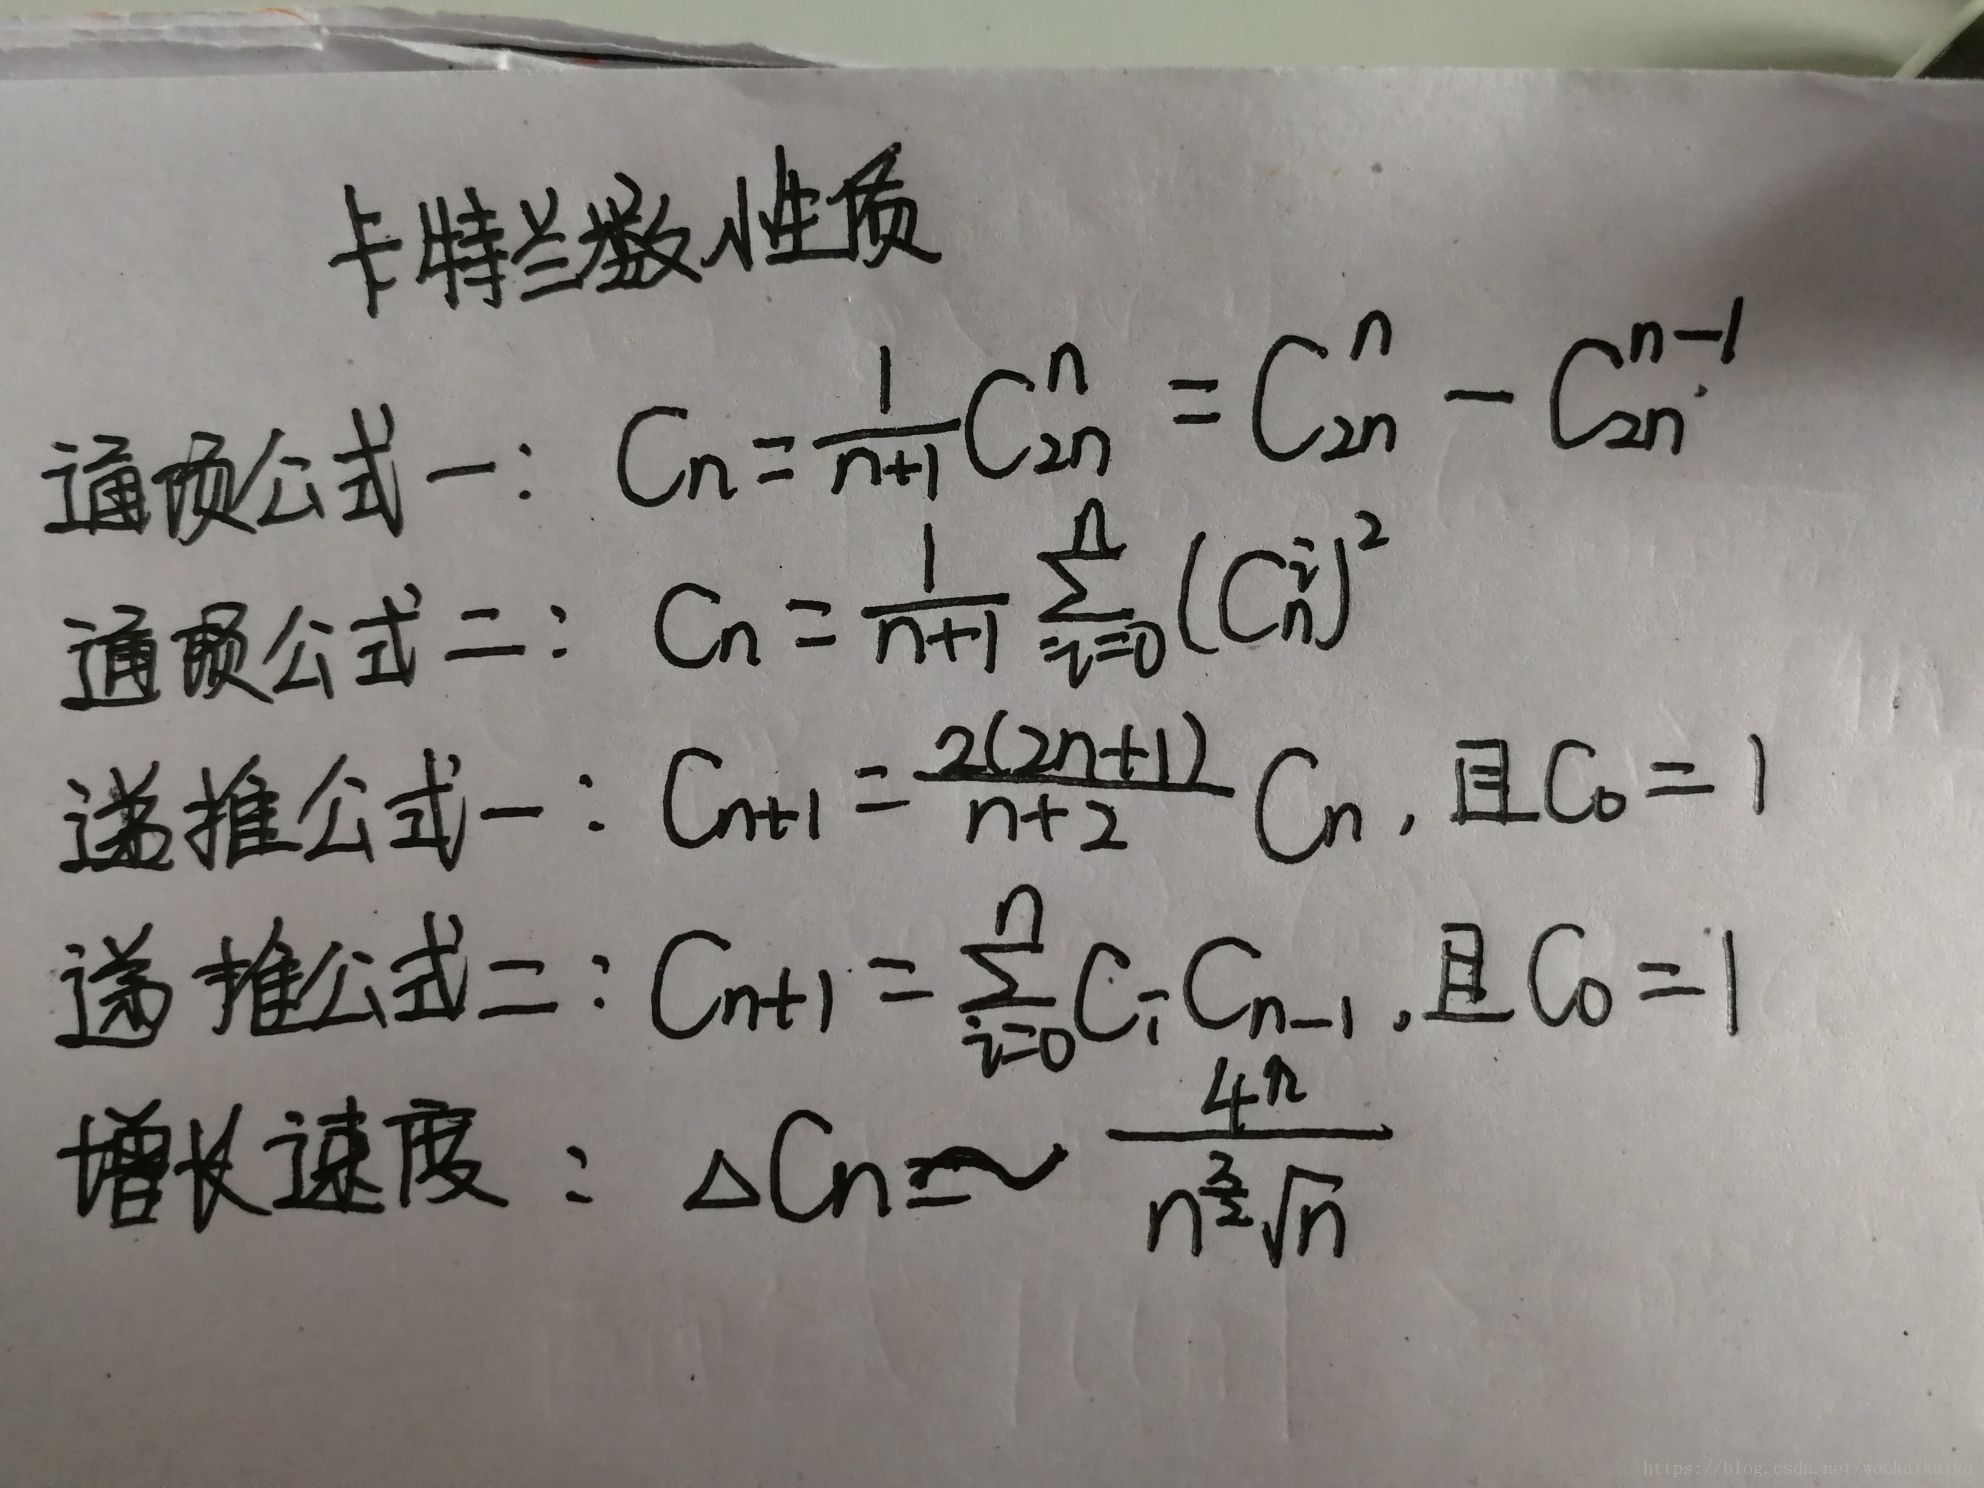 卡特兰数性质
通项公式一: Cn = \frac{1}{n+1} C_{2n}^{n} = C_{2n}^{n} - C_{2n}^{n-1}
通项公式二: Cn = \frac{1}{n+1} \sum_{i=0}^{n} (C_{n}^{i})^{2}
递推公式一: C_{n+1} = \frac{2(2n+1)}{n+2} C_{n}, 且C_{0} = 1
递推公式二: C_{n+1} = \sum_{i=0}^{n} C_{i} C_{n-1}, 且C_{0} = 1
增长速度: △Cn = ~ \frac{4^{n}}{n^{\frac{3}{2}} \sqrt{n}}
https://blog.csdn.net/wookaikaiko